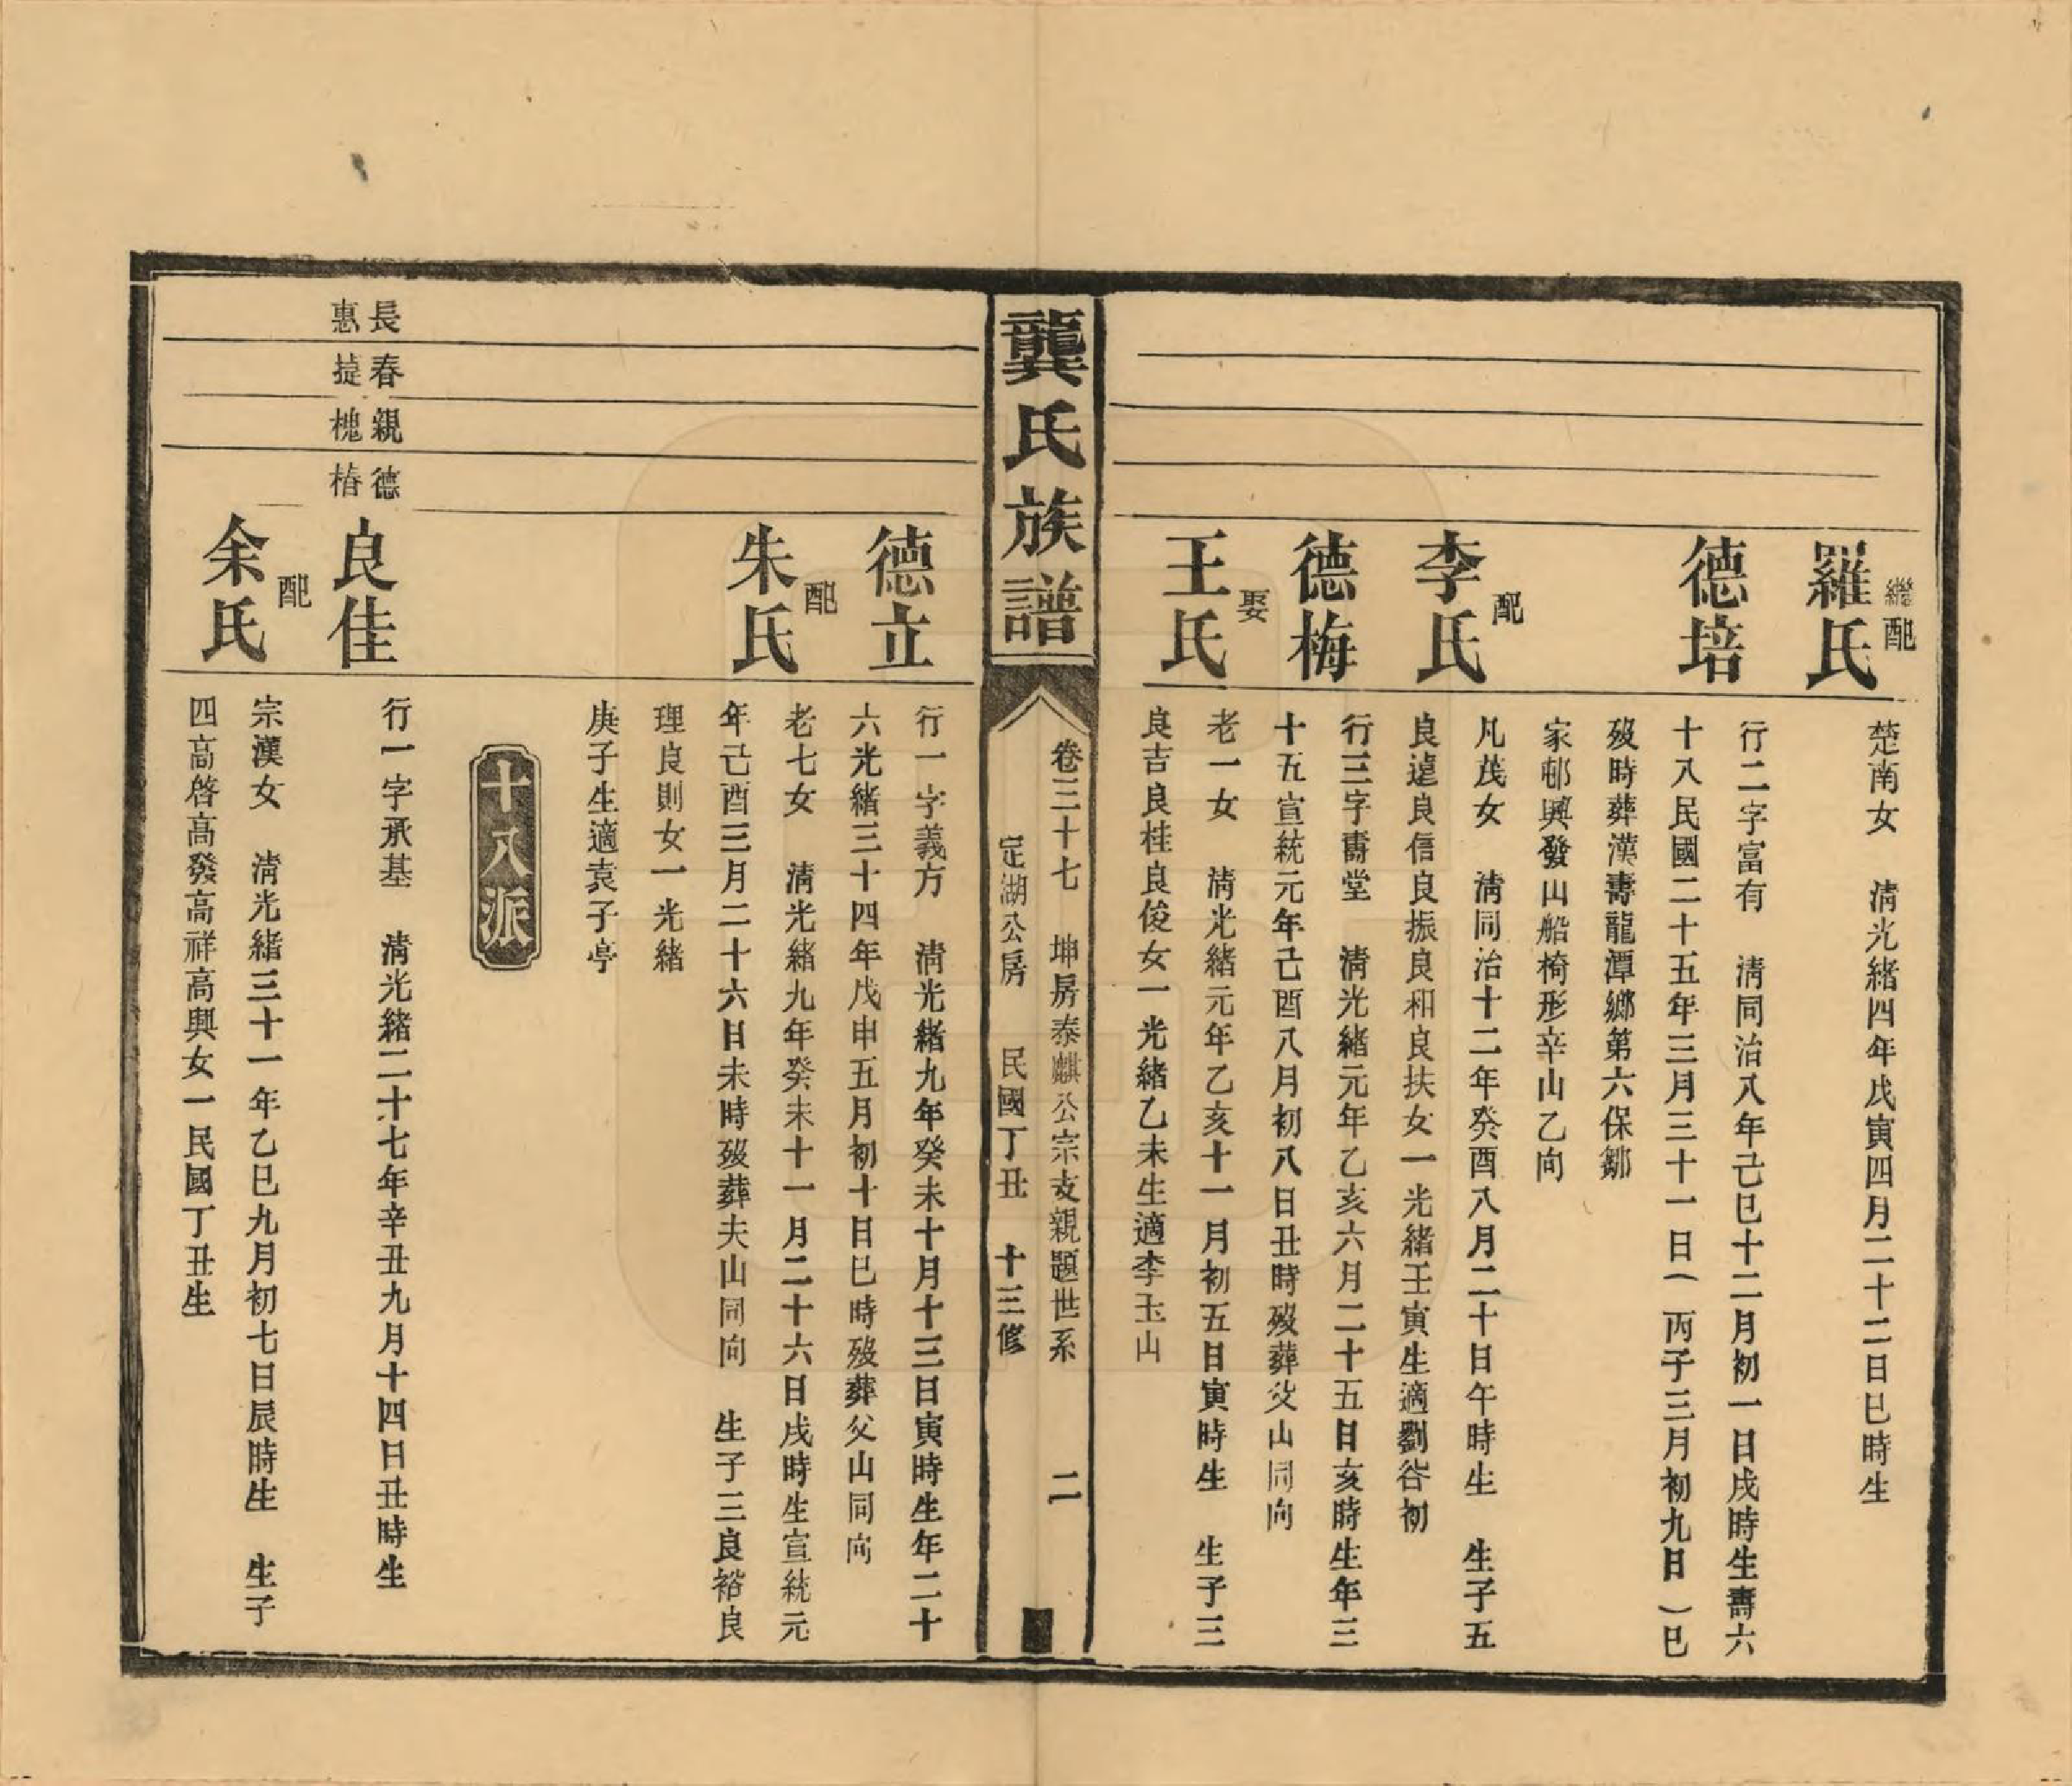 繼配
羅氏
楚南女　淸光緒四年戊寅四月二十二日巳時生
德培
行二字富有　淸同治八年己巳十二月初一日戌時生壽六
十八民國二十五年三月三十一日（丙子三月初九日）巳
歿時葬漢壽龍潭鄉第六保鄒
家邨興發山船椅形辛山乙向
配
李氏
凡茂女　淸同治十二年癸酉八月二十日午時生　生子五
良遠良信良振良和良扶女一光緒壬寅生適劉谷初
德梅
行三字壽堂　淸光緒元年乙亥六月二十五日亥時生年三
十五宣統元年己酉八月初八日丑時歿葬父山同向
娶
王氏
老一女　淸光緒元年乙亥十一月初五日寅時生　生子三
良吉良桂良俊女一光緒乙未生適李玉山
龔氏族譜
卷三十七　坤房泰麒公宗支親題世系　二
定湖公房　民國丁丑　十三修
德立
行一字義方　淸光緒九年癸未十月十三日寅時生年二十
六光緒三十四年戊申五月初十日巳時歿葬父山同向
配
朱氏
老七女　淸光緒九年癸未十一月二十六日戌時生宣統元
年己酉三月二十六日未時歿葬夫山同向　生子三良裕良
理良則女一光緒
庚子生適袁子亭
十八派
長春親德
惠㨗槐椿
良佳
行一字承基　淸光緒二十七年辛丑九月十四日丑時生
配
余氏
宗漢女　淸光緒三十一年乙巳九月初七日辰時生　生子
四高啓高發高祥高興女一民國丁丑生